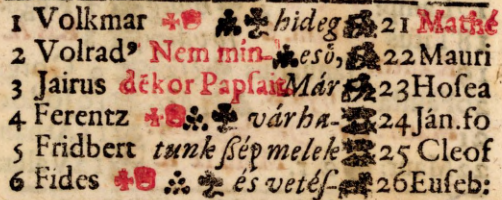 1 Volkmar hideg 21 Mathé
2 Volrad⁹ Nem min- esö, 22 Mauri
3 Jairus dēkor Papſait Már 23 Hoſea
4 Ferentz várha- 24 Ján. fo
5 Fridbert tunk ſzép melek 25 Cleof
6 Fides és vetéſ- 26 Euſeb: